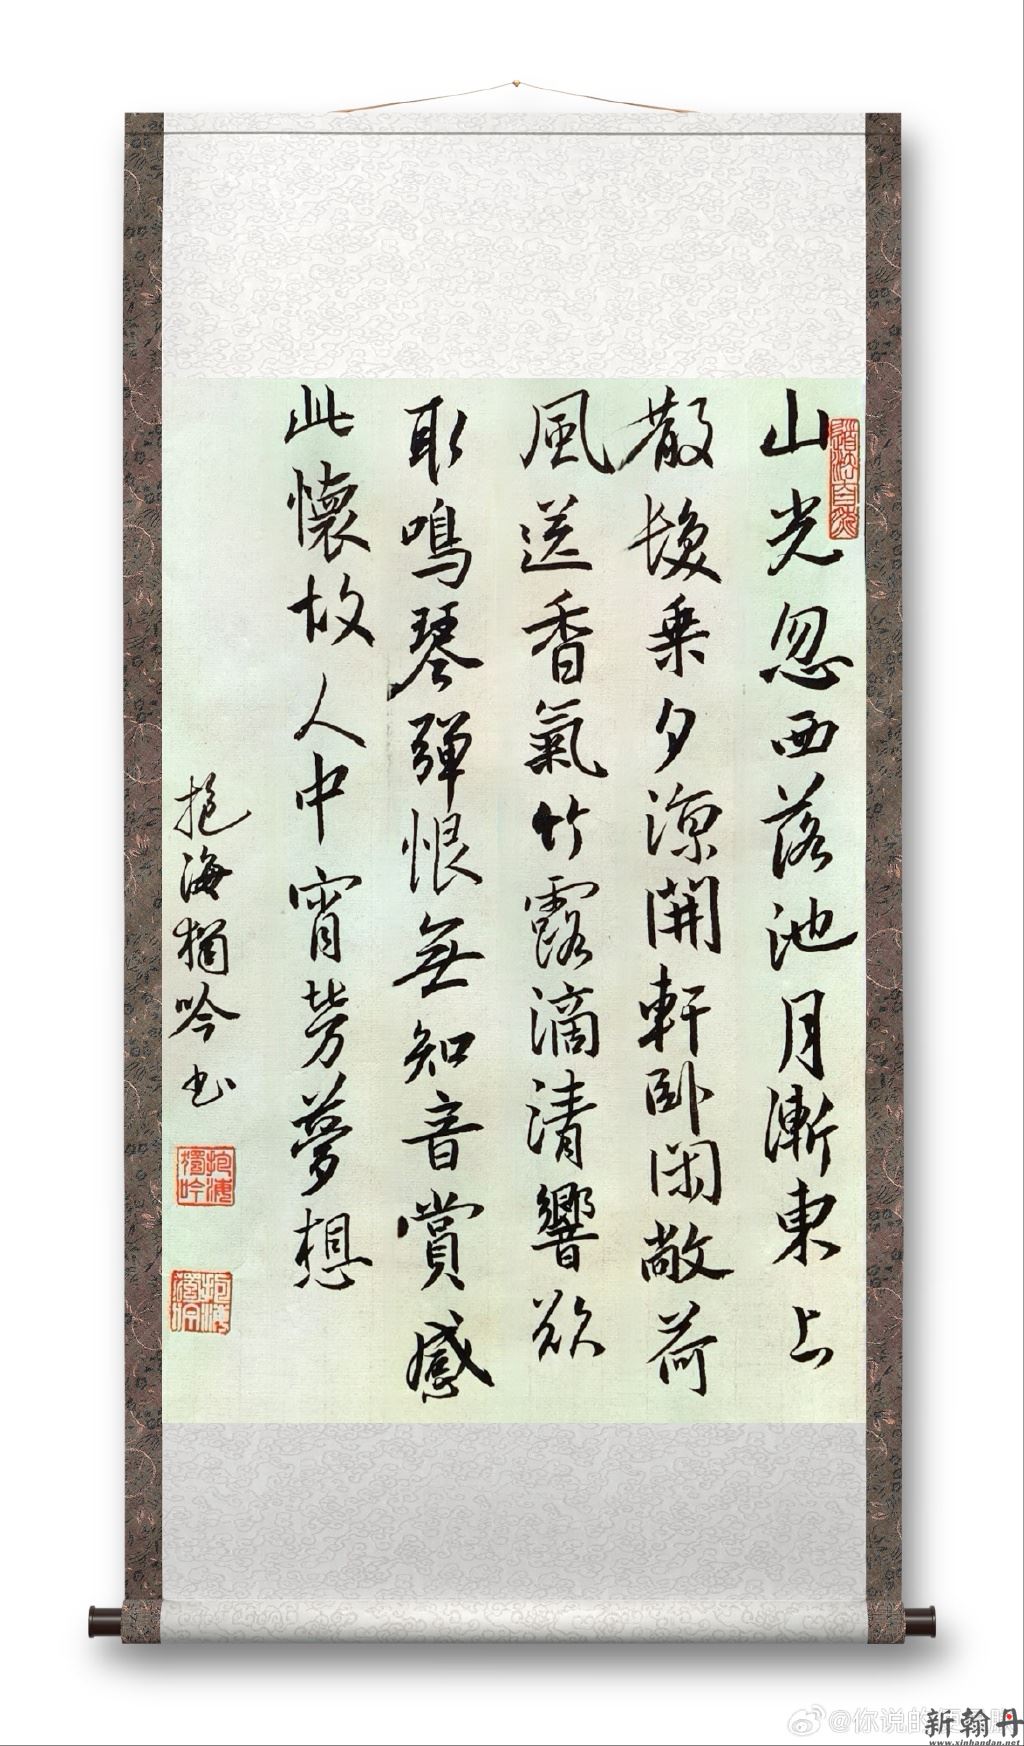 山光忽西落池月漸東上
散髮乘夕涼開軒臥閑敞荷
風送香氣竹露滴清響欲
取鳴琴彈恨無知音賞感
此懷故人中宵勞夢想
抱海獨吟书
道法自然
抱海獨吟
抱海獨吟
@你说的
新翰丹
www.xinhandan.net